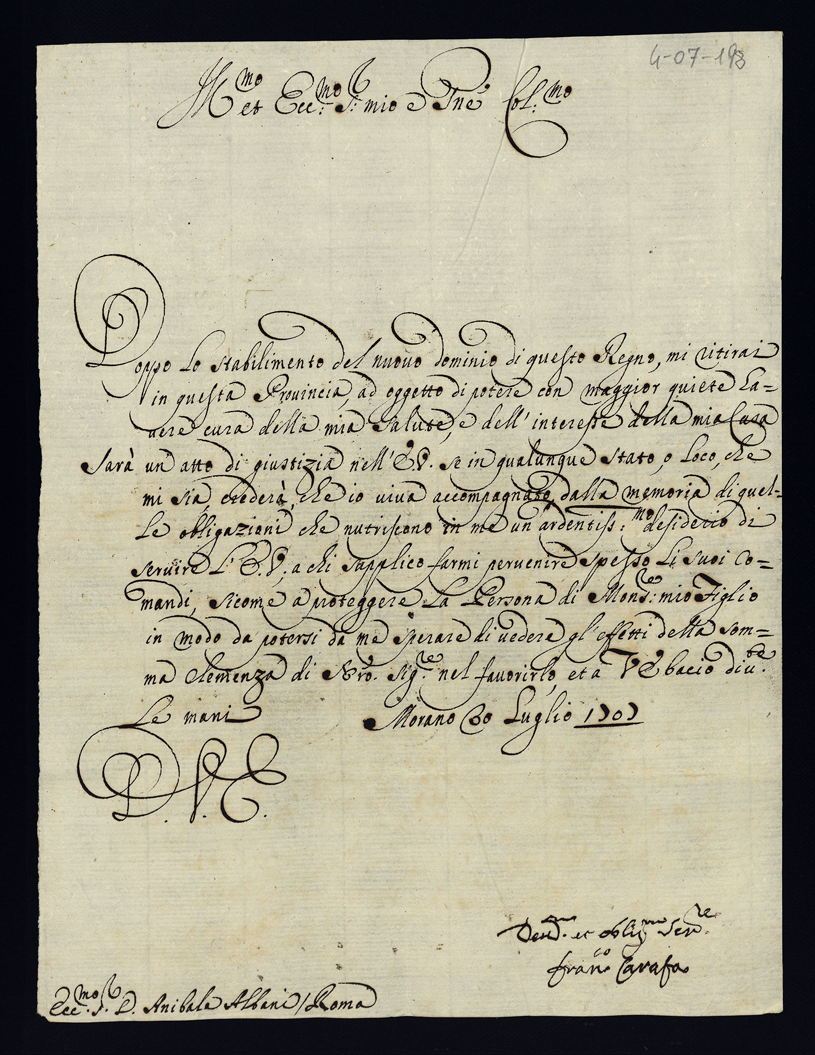 4-07-193
Ill.mo et Ecc.mo S.r mio e Pne Col.mo
Doppo lo stabilimento del nuovo dominio di questo Regno, mi ritirai
in questa Provincia, ad oggetto di potere con maggior quiete ha=
uere cura della mia salute, e dell' interesse della mia Casa
Sarà un atto di giustizia nell' E.V. se in qualunque stato, o loco, che
mi sia, crederà, che io viva accompagnato dalla memoria di quel=
le obligazioni che nutriscono in me un ardentiss:mo desiderio di
seruire l' E.V., a chi supplico farmi peruenire spesso li suoi co=
mandi, sicome a proteggere la Persona di Mons:re mio Figlio
in modo da potersi da me sperare di vedere gl' effetti della som=
ma Clemenza di Nro. Sig.re nel fauorirlo, et a VE bacio diu.te
le mani Morano 30 Luglio 1707
D. V. E.
Deu.mo et oblig.mo Ser.re
Fran.co Carafa
Ecc.mo S.r D. Anibale Albani / Roma